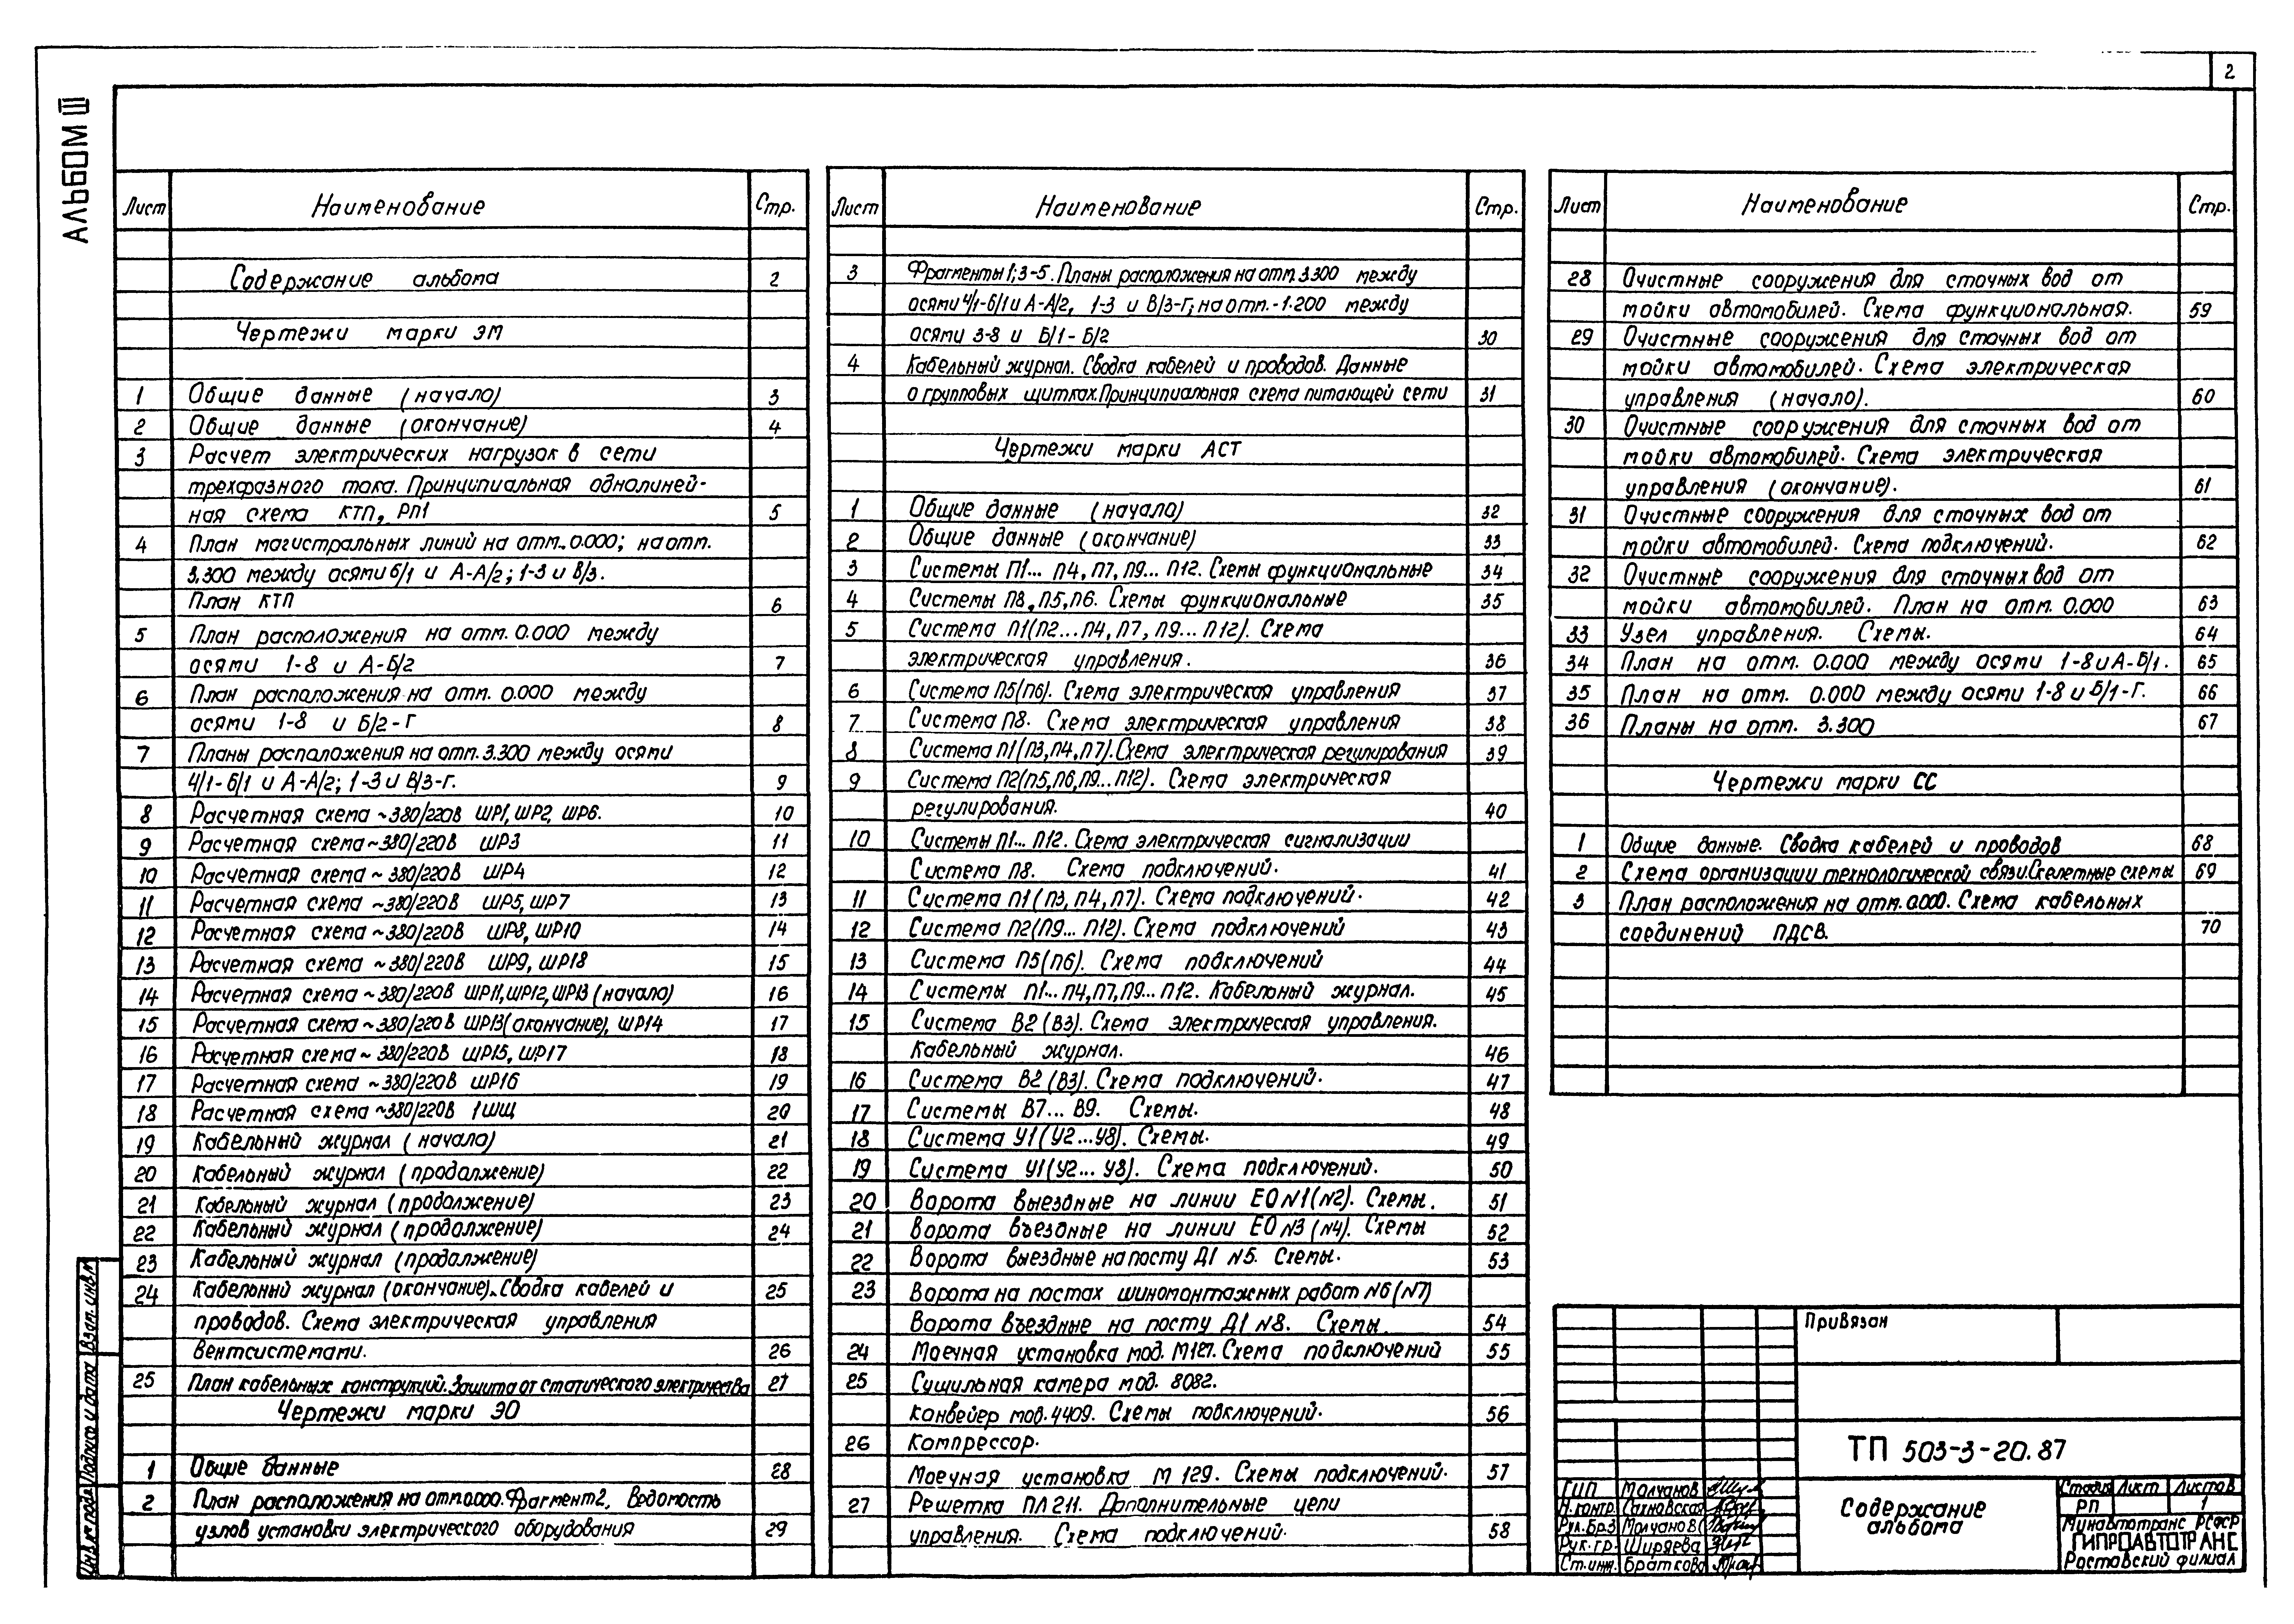 2
АЛЬБОМ III
Лист Наименование Стр.
Содержание альбома 2
Чертежи марки ЭМ
1 Общие данные (начало) 3
2 Общие данные (окончание) 4
3 Расчет электрических нагрузок в сети
трехфазного тока. Принципиальная однолиней-
ная схема КТП, РП1 5
4 План магистральных линий на отм. 0.000; на отм.
3.300 между осями 6/1 и А-А/2; 1-3 и В/3.
План КТП 6
5 План расположения на отм. 0.000 между
осями 1-8 и А-Б/2 7
6 План расположения на отм. 0.000 между
осями 1-8 и Б/2-Г 8
7 Планы расположения на отм. 3.300 между осями
4/1-6/1 и А-А/2; 1-3 и В/3-Г. 9
8 Расчетная схема ~380/220В ШР1, ШР2, ШР6. 10
9 Расчетная схема ~380/220В ШР3 11
10 Расчетная схема ~380/220В ШР4 12
11 Расчетная схема ~380/220В ШР5, ШР7 13
12 Расчетная схема ~380/220В ШР8, ШР10 14
13 Расчетная схема ~380/220В ШР9, ШР18 15
14 Расчетная схема ~380/220В ШР11, ШР12, ШР13 (начало) 16
15 Расчетная схема ~380/220В ШР13 (окончание), ШР14 17
16 Расчетная схема ~380/220В ШР15, ШР17 18
17 Расчетная схема ~380/220В ШР16 19
18 Расчетная схема ~380/220В 1ШЩ 20
19 Кабельный журнал (начало) 21
20 Кабельный журнал (продолжение) 22
21 Кабельный журнал (продолжение) 23
22 Кабельный журнал (продолжение) 24
23 Кабельный журнал (продолжение)
24 Кабельный журнал (окончание). Сводка кабелей и 25
проводов. Схема электрическая управления
вентсистемами. 26
25 План кабельных конструкций. Защита от статического электричества 27
Чертежи марки ЭО
1 Общие данные 28
2 План расположения на отм. 0.000. Фрагмент 2, Ведомость
узлов установки электрического оборудования 29
Лист Наименование Стр.
3 Фрагменты 1; 3-5. Планы расположения на отм. 3.300 между
осями 4/1-6/1 и А-А/2, 1-3 и В/3-Г; на отм. -1.200 между
осями 3-8 и Б/1-Б/2 30
4 Кабельный журнал. Сводка кабелей и проводов. Данные
о групповых щитках. Принципиальная схема питающей сети 31
Чертежи марки АСТ
1 Общие данные (начало) 32
2 Общие данные (окончание) 33
3 Системы П1... П4, П7, П9... П12. Схемы функциональные 34
4 Системы П8, П5, П6. Схемы функциональные 35
5 Система П1 (П2... П4, П7, П9... П12). Схема
электрическая управления. 36
6 Система П5 (П6). Схема электрическая управления 37
7 Система П8. Схема электрическая управления 38
8 Система П1 (П3, П4, П7). Схема электрическая регулирования 39
9 Система П2 (П5, П6, П9... П12). Схема электрическая
регулирования. 40
10 Системы П1... П12. Схема электрическая сигнализации
Система П8. Схема подключений. 41
11 Система П1 (П3, П4, П7). Схема подключений. 42
12 Система П2 (П9... П12). Схема подключений 43
13 Система П5 (П6). Схема подключений 44
14 Системы П1... П4, П7, П9... П12. Кабельный журнал. 45
15 Система В2 (В3). Схема электрическая управления.
Кабельный журнал. 46
16 Система В2 (В3). Схема подключений. 47
17 Системы В7... В9. Схемы. 48
18 Система У1 (У2... У8). Схемы. 49
19 Система У1 (У2... У8). Схема подключений. 50
20 Ворота выездные на линии ЕО N1 (N2). Схемы. 51
21 Ворота въездные на линии ЕО N3 (N4). Схемы 52
22 Ворота выездные на посту Д1 N5. Схемы. 53
23 Ворота на постах шиномонтажных работ N6 (N7)
Ворота въездные на посту Д1 N8. Схемы. 54
24 Моечная установка мод. М127. Схема подключений 55
25 Сушильная камера мод. 8082.
Конвейер мод. 4409. Схемы подключений. 56
26 Компрессор.
Моечная установка М 129. Схемы подключений. 57
27 Решетка ПЛ 211. Дополнительные цепи
управления. Схема подключений. 58
Лист Наименование Стр.
28 Очистные сооружения для сточных вод от
мойки автомобилей. Схема функциональная. 59
29 Очистные сооружения для сточных вод от
мойки автомобилей. Схема электрическая
управления (начало). 60
30 Очистные сооружения для сточных вод от
мойки автомобилей. Схема электрическая
управления (окончание). 61
31 Очистные сооружения для сточных вод от
мойки автомобилей. Схема подключений. 62
32 Очистные сооружения для сточных вод от
мойки автомобилей. План на отм. 0.000 63
33 Узел управления. Схемы. 64
34 План на отм. 0.000 между осями 1-8 и А-Б/1. 65
35 План на отм. 0.000 между осями 1-8 и Б/1-Г. 66
36 Планы на отм. 3.300 67
Чертежи марки СС
1 Общие данные. Сводка кабелей и проводов 68
2 Схема организации технологической связи. Скелетные схемы 69
3 План расположения на отм. 0.000. Схема кабельных
соединений ПДСВ. 70
Привязан
ТП 503-3-20.87
ГИП Молчанов
Н.контр. Сахновская
Рук.бр.3 Молчанов
Рук.гр. Ширяева
Ст.инж. Браткова
Содержание
альбома
Стадия Лист Листов
РП 1
Минавтотранс РСФСР
ГИПРОАВТОТРАНС
Ростовский филиал
Инв.№ подл. Подпись и дата Взам. инв.№